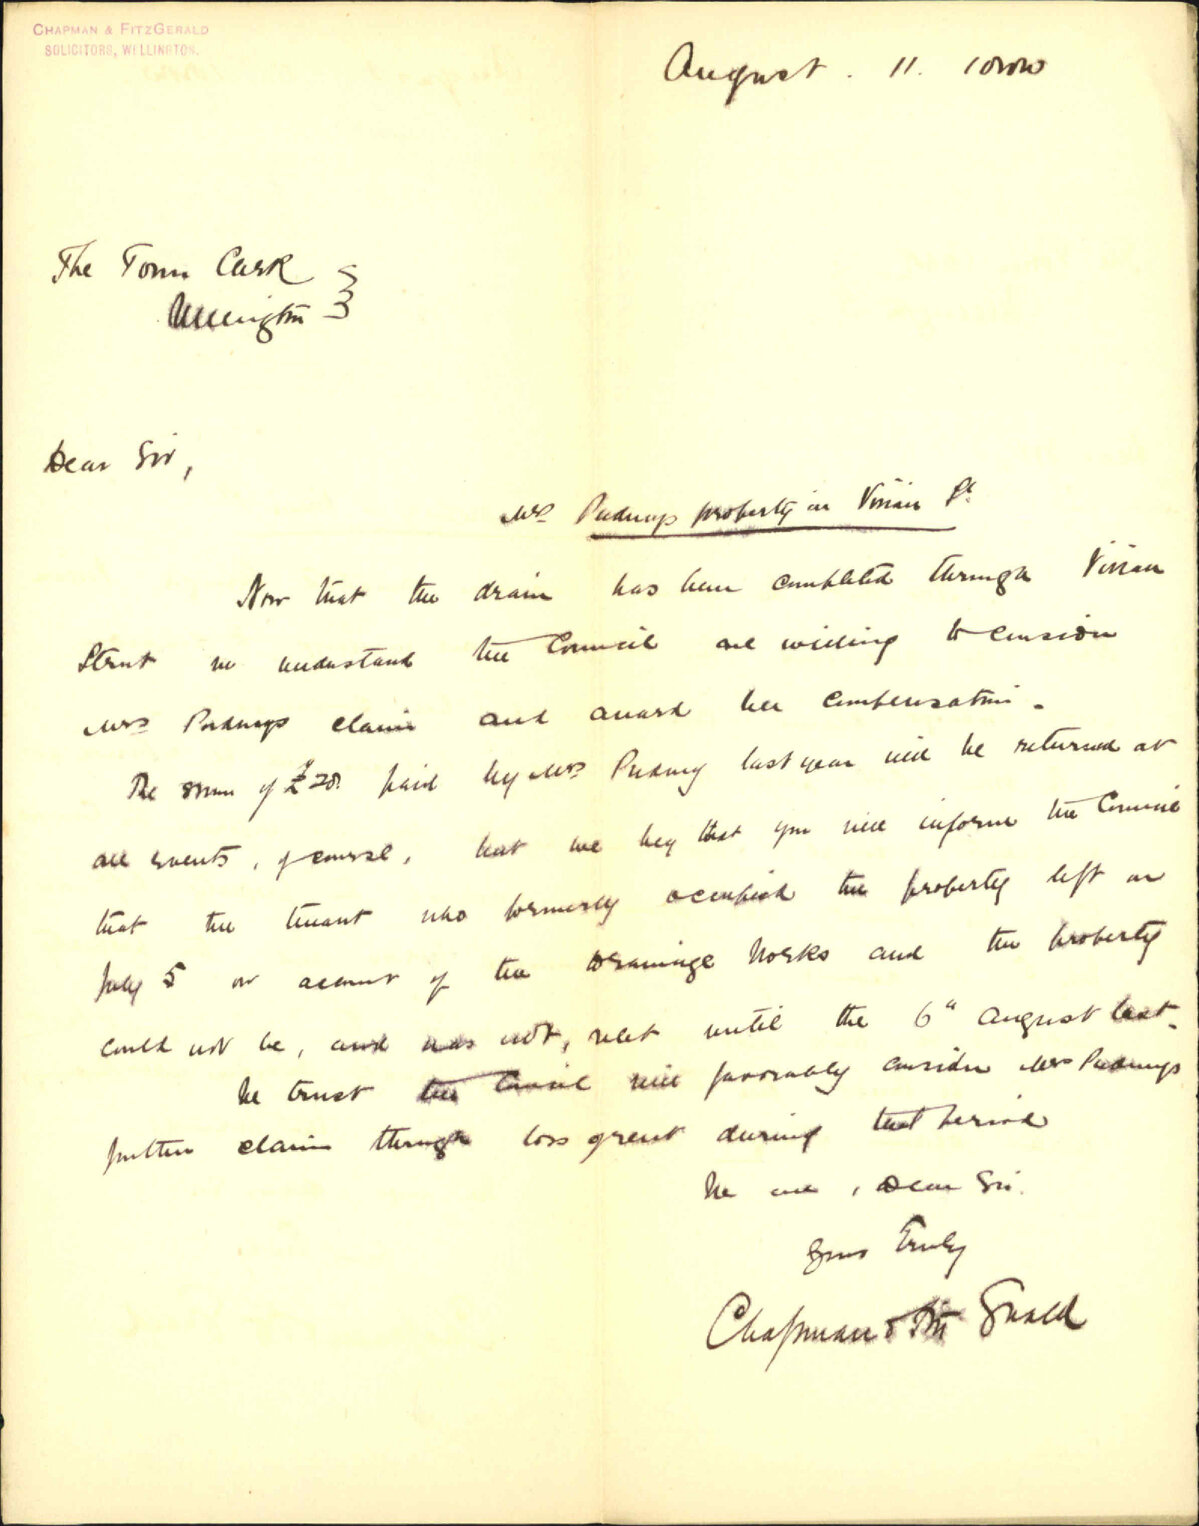 CHAPMAN & FITZGERALD
SOLICITORS, WELLINGTON.
August. 11.
The Town Clerk
Wellington
Dear Sir,
Mrs property in Vivian St
Now that the drain has been completed through Vivian
Street we understand the Council are willing to consider
Mrs claim and award her compensation.
The sum of £20 paid by Mrs last year will be returned at
all events, of course, but we beg that you will inform the Council
that the tenant who formerly occupied the property left on
July 5 on account of the Drainage Works and the property
could not be, and was not, relet until the 6th August last.
We trust the Council will favorably consider Mrs
further claim through loss of rent during that period
We are, Dear Sir.
Yours Truly
Chapman & Fitz Gerald